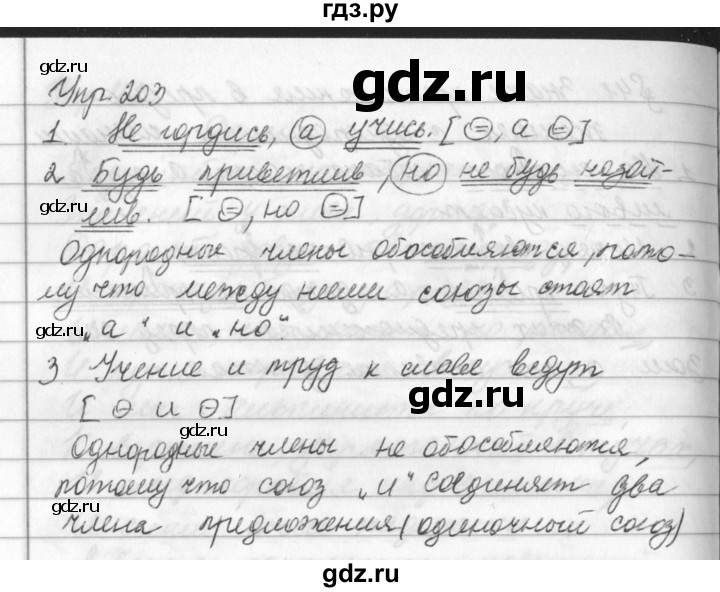 гдз.ру
gdz.ru
Упр 203
gdz.ru
1 Не гордись, а учись. [⊖, а ⊖]
2 Будь приветлив, но не будь назой-
gdz.ru
лив. [⊖, но ⊖]
Однородные члены обособляются, пото-
му что между ними союзы стоят
gdz.ru
„а" и „но".
3 Учение и труд к славе ведут
gdz.ru
[⊖ и ⊖]
gdz.ru
Однородные члены не обособляются,
потому что союз „и" соединяет два
члена предложения (одиночный союз)
gdz.ru
gdz.ru